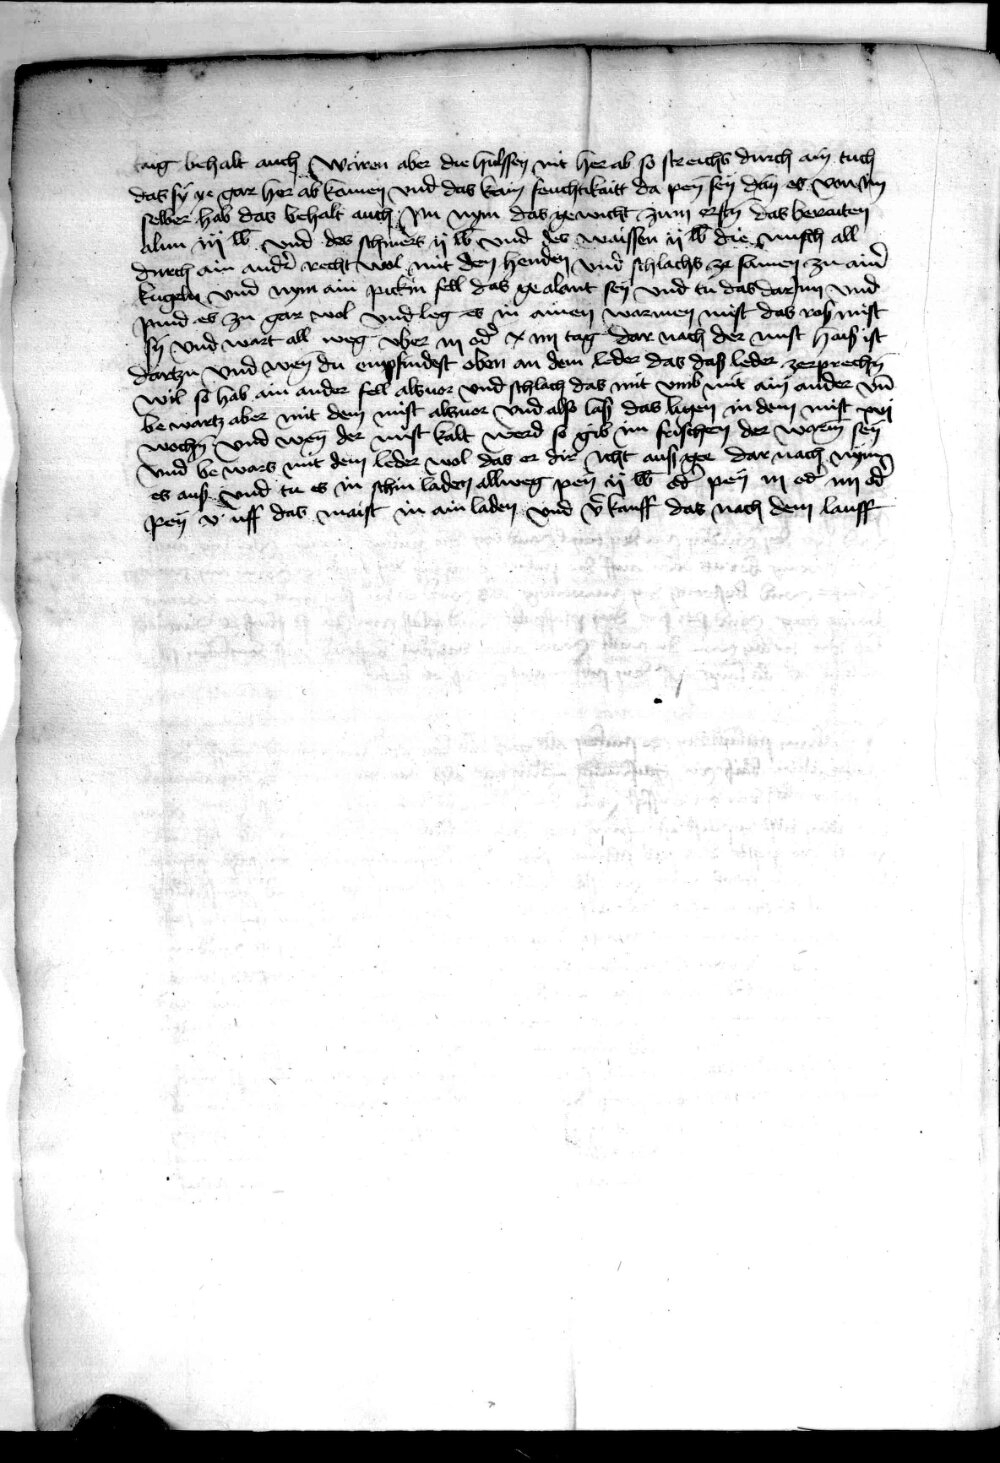 taig behalt auch Wären aber die hülssen nit her ab so streichs durch ain tuch
das sÿ ye gar her ab komen vnd das kain feuchtikaitt da peÿ seÿ dan es von im
selber hab das behalt auch Nu nym das gewicht zum ersten das beraiten
alun iij lb vnd des schmers ij lb vnd des waissen ij lb die misch all
durch ain ander recht wol mit den henden vnd schlachs ze samen zu ainer
kugeln vnd nym ain puckin fell das gealawt seÿ vnd tu das dar jnn vnd
pind es zu gar wol vnd leg es in ainen warmen mist das ross mist
sÿ vnd wart all weg vber iij oder x iiii tag dar nach der mist haiss ist
dartzu vnd wen du empfindest oben an dem leder das dass leder zerprechen
wil so hab ain ander fell alsuor vnd schlach das mit vmb mit ain ander vnd
be wartz aber mit dem mist alsuor vnd also lass das ligen in dem mist xvj
wochen vnd wen der mist kalt werd so gib im frischen der warm seÿ
vnd be wars mit dem leder wol das er dir icht auss gee dar nach nÿm
es auss vnd tu es in schin laden allweg peÿ ij lb oder peÿ iij oder iiij oder
peÿ v uff das maist in ain laden vnd verkauff das nach dem lauff